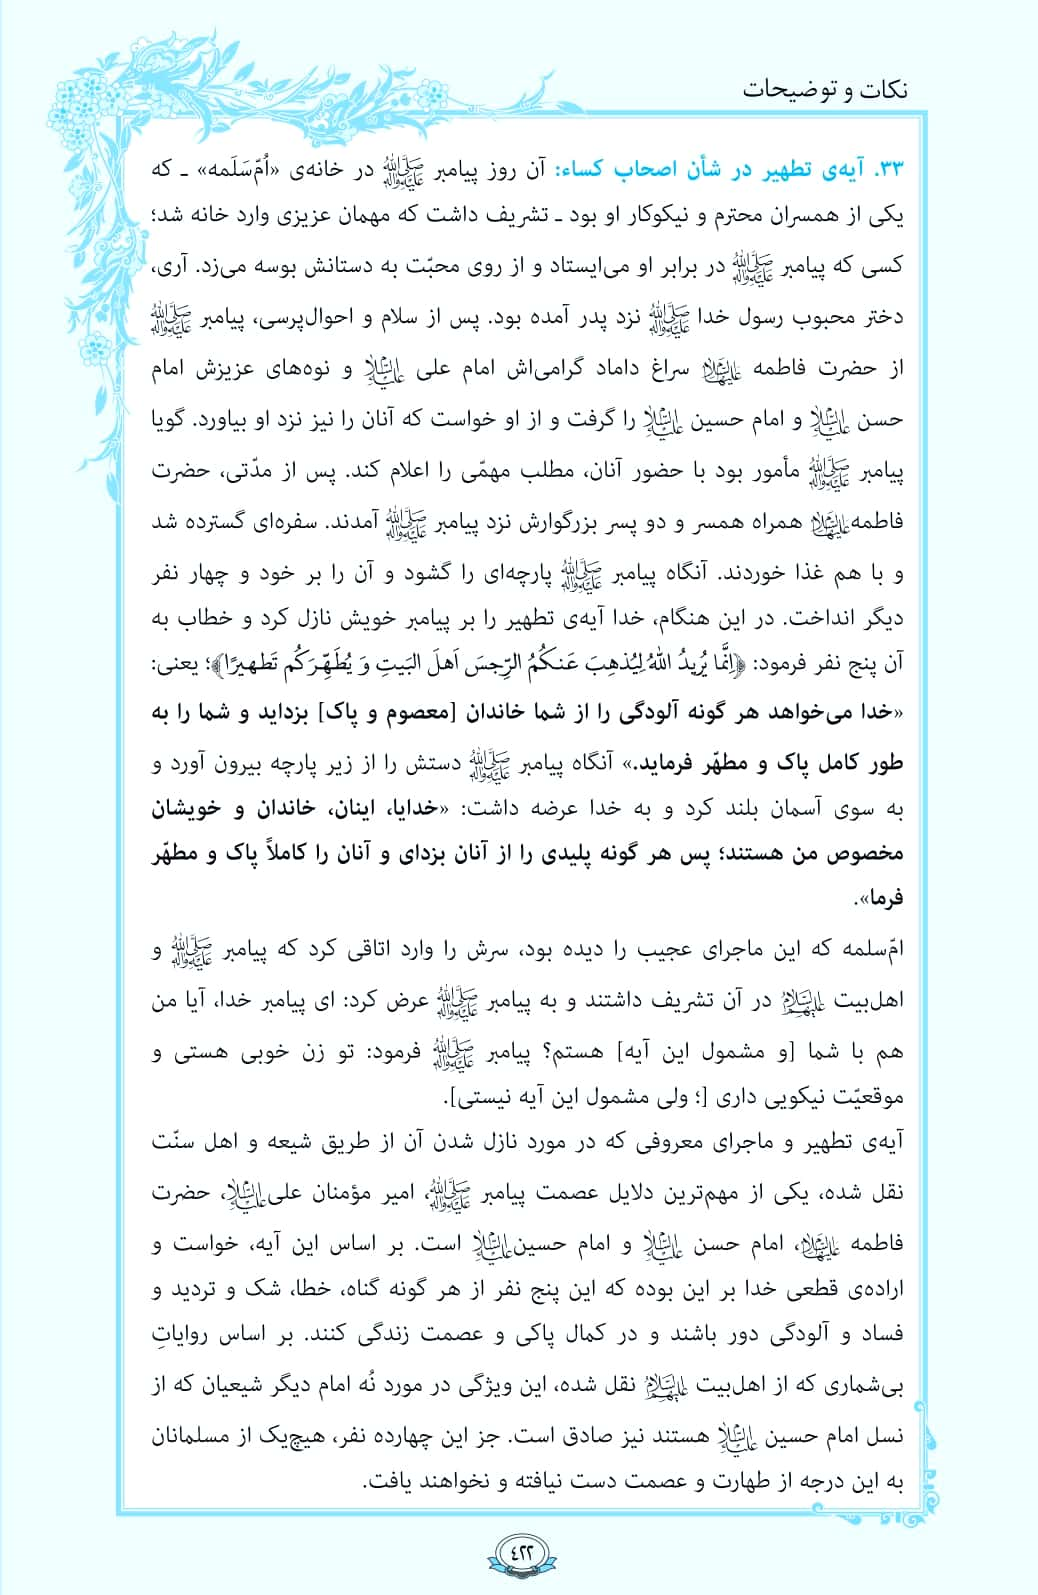 نکات و توضیحات
۳۳. آیه‌ی تطهیر در شأن اصحاب کساء: آن روز پیامبر ﷺ در خانه‌ی «اُمّ‌سَلَمه» ـ که
یکی از همسران محترم و نیکوکار او بود ـ تشریف داشت که مهمان عزیزی وارد خانه شد؛
کسی که پیامبر صَلَّى اللهُ عَلَیهِ وَآلِه در برابر او می‌ایستاد و از روی محبّت به دستانش بوسه می‌زد. آری،
دختر محبوب رسول خدا صَلَّى اللهُ عَلَیهِ وَآلِه نزد پدر آمده بود. پس از سلام و احوال‌پرسی، پیامبر صَلَّى اللهُ عَلَیهِ وَآلِه
از حضرت فاطمه عَلَیهَا السَّلام سراغ داماد گرامی‌اش امام علی عَلَیهِ السَّلام و نوه‌های عزیزش امام
حسن عَلَیهِ السَّلام و امام حسین عَلَیهِ السَّلام را گرفت و از او خواست که آنان را نیز نزد او بیاورد. گویا
پیامبر صَلَّى اللهُ عَلَیهِ وَآلِه مأمور بود با حضور آنان، مطلب مهمّی را اعلام کند. پس از مدّتی، حضرت
فاطمه عَلَیهَا السَّلام همراه همسر و دو پسر بزرگوارش نزد پیامبر صَلَّى اللهُ عَلَیهِ وَآلِه آمدند. سفره‌ای گسترده شد
و با هم غذا خوردند. آنگاه پیامبر صَلَّى اللهُ عَلَیهِ وَآلِه پارچه‌ای را گشود و آن را بر خود و چهار نفر
دیگر انداخت. در این هنگام، خدا آیه‌ی تطهیر را بر پیامبر خویش نازل کرد و خطاب به
آن پنج نفر فرمود: ﴿اِنَّما یُریدُ اللهُ لِیُذهِبَ عَنکُمُ الرِّجسَ اَهلَ البَیتِ وَ یُطَهِّرَکُم تَطهیرًا﴾؛ یعنی:
«خدا می‌خواهد هر گونه آلودگی را از شما خاندان [معصوم و پاک] بزداید و شما را به
طور کامل پاک و مطهّر فرماید.» آنگاه پیامبر صَلَّى اللهُ عَلَیهِ وَآلِه دستش را از زیر پارچه بیرون آورد و
به سوی آسمان بلند کرد و به خدا عرضه داشت: «خدایا، اینان، خاندان و خویشان
مخصوص من هستند؛ پس هر گونه پلیدی را از آنان بزدای و آنان را کاملاً پاک و مطهّر
فرما».
امّ‌سلمه که این ماجرای عجیب را دیده بود، سرش را وارد اتاقی کرد که پیامبر صَلَّى اللهُ عَلَیهِ وَآلِه و
اهل‌بیت عَلَیهِمُ السَّلام در آن تشریف داشتند و به پیامبر صَلَّى اللهُ عَلَیهِ وَآلِه عرض کرد: ای پیامبر خدا، آیا من
هم با شما [و مشمول این آیه] هستم؟ پیامبر صَلَّى اللهُ عَلَیهِ وَآلِه فرمود: تو زن خوبی هستی و
موقعیّت نیکویی داری [؛ ولی مشمول این آیه نیستی].
آیه‌ی تطهیر و ماجرای معروفی که در مورد نازل شدن آن از طریق شیعه و اهل سنّت
نقل شده، یکی از مهم‌ترین دلایل عصمت پیامبر صَلَّى اللهُ عَلَیهِ وَآلِه، امیر مؤمنان علی عَلَیهِ السَّلام، حضرت
فاطمه عَلَیهَا السَّلام، امام حسن عَلَیهِ السَّلام و امام حسین عَلَیهِ السَّلام است. بر اساس این آیه، خواست و
اراده‌ی قطعی خدا بر این بوده که این پنج نفر از هر گونه گناه، خطا، شک و تردید و
فساد و آلودگی دور باشند و در کمال پاکی و عصمت زندگی کنند. بر اساس روایاتِ
بی‌شماری که از اهل‌بیت عَلَیهِمُ السَّلام نقل شده، این ویژگی در مورد نُه امام دیگر شیعیان که از
نسل امام حسین عَلَیهِ السَّلام هستند نیز صادق است. جز این چهارده نفر، هیچ‌یک از مسلمانان
به این درجه از طهارت و عصمت دست نیافته و نخواهند یافت.
۴۲۲